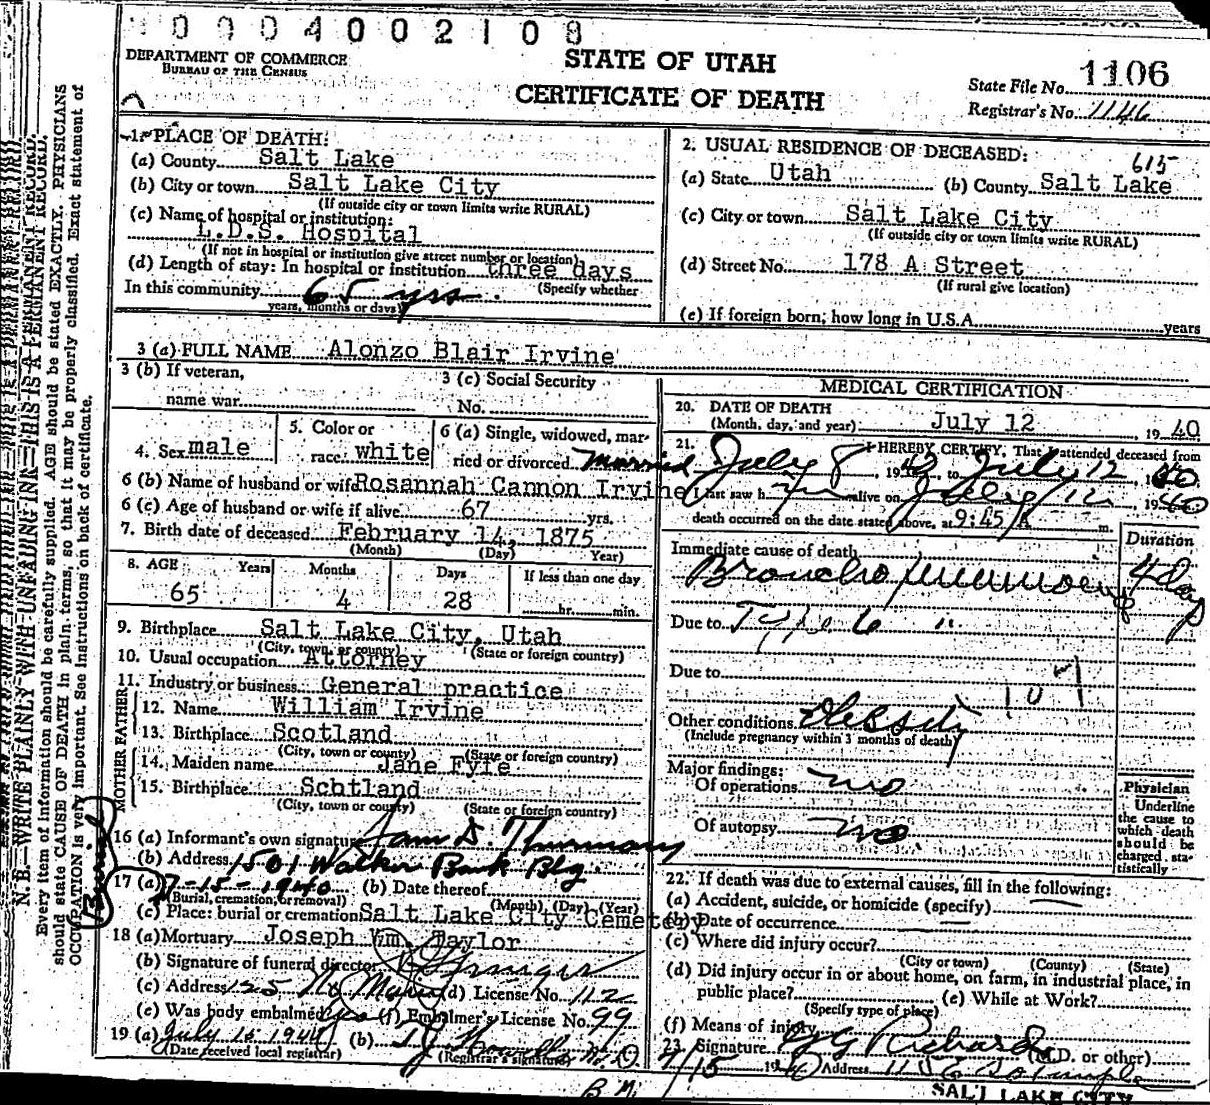 0004002108
DEPARTMENT OF COMMERCE
BUREAU OF THE CENSUS
STATE OF UTAH
CERTIFICATE OF DEATH
State File No. 1106
Registrar's No. 1146
1. PLACE OF DEATH:
(a) County Salt Lake
(b) City or town Salt Lake City
(If outside city or town limits write RURAL)
(c) Name of hospital or institution:
L.D.S. Hospital
(If not in hospital or institution give street number or location)
(d) Length of stay: In hospital or institution three days
(Specify whether
In this community 65 yrs.
years, months or days)
2. USUAL RESIDENCE OF DECEASED:
615
(a) State Utah (b) County Salt Lake
(c) City or town Salt Lake City
(If outside city or town limits write RURAL)
(d) Street No. 178 A Street
(If rural give location)
(e) If foreign born, how long in U.S.A. years
3 (a) FULL NAME Alonzo Blair Irvine
3 (b) If veteran,
name war
3 (c) Social Security
No.
4. Sex male
5. Color or
race white
6 (a) Single, widowed, mar-
ried or divorced Married
6 (b) Name of husband or wife Rosannah Cannon Irvine
6 (c) Age of husband or wife if alive 67 yrs.
7. Birth date of deceased February 14, 1875
(Month) (Day) Year)
8. AGE Years Months Days If less than one day
65 4 28 hr. min.
9. Birthplace Salt Lake City, Utah
(City, town or county) (State or foreign country)
10. Usual occupation Attorney
11. Industry or business General practice
FATHER
12. Name William Irvine
13. Birthplace Scotland
(City, town or county) (State or foreign country)
MOTHER
14. Maiden name Jane Fyfe
15. Birthplace Schtland
(City, town or county) (State or foreign country)
16 (a) Informant's own signature Sam D. Thurman
(b) Address 1501 Walker Bank Bldg.
17 (a) 7-15-1940 (b) Date thereof
Burial
(Burial, cremation, or removal) (Month), (Day) (Year)
(c) Place: burial or cremation Salt Lake City Cemetery
18 (a) Mortuary Joseph Wm. Taylor
(b) Signature of funeral director
(c) Address 125 No Main (d) License No. 112
(e) Was body embalmed yes (f) Embalmer's License No. 99
19 (a) July 15 1940 (b)
(Date received local registrar) (Registrar's signature)
MEDICAL CERTIFICATION
20. DATE OF DEATH
(Month, day, and year) July 12, 1940
21. I HEREBY CERTIFY, That I attended deceased from
July 8 1940, to July 12 1940
I last saw him alive on July 12 1940
death occurred on the date stated above, at 9:45 A m.
Duration
Immediate cause of death
Broncho pneumonia 4 days
Due to Type 6 "
Due to
107
Other conditions Obesity
(Include pregnancy within 3 months of death)
Major findings:
Of operations no
Of autopsy no
Physician
Underline
the cause to
which death
should be
charged sta-
tistically
22. If death was due to external causes, fill in the following:
(a) Accident, suicide, or homicide (specify)
(b) Date of occurrence
(c) Where did injury occur?
(City or town) (County) (State)
(d) Did injury occur in or about home, on farm, in industrial place, in
public place? (e) While at Work?
(Specify type of place)
(f) Means of injury
23. Signature G G Richards (M.D. or other)
7/15 1940 Address 1156 So Temple
SALT LAKE CITY
N. B.—WRITE PLAINLY WITH UNFADING INK—THIS IS A PERMANENT RECORD.
Every item of information should be carefully supplied. AGE should be stated EXACTLY. PHYSICIANS
should state CAUSE OF DEATH in plain terms, so that it may be properly classified. Exact statement of
OCCUPATION is very important. See Instructions on back of certificate.